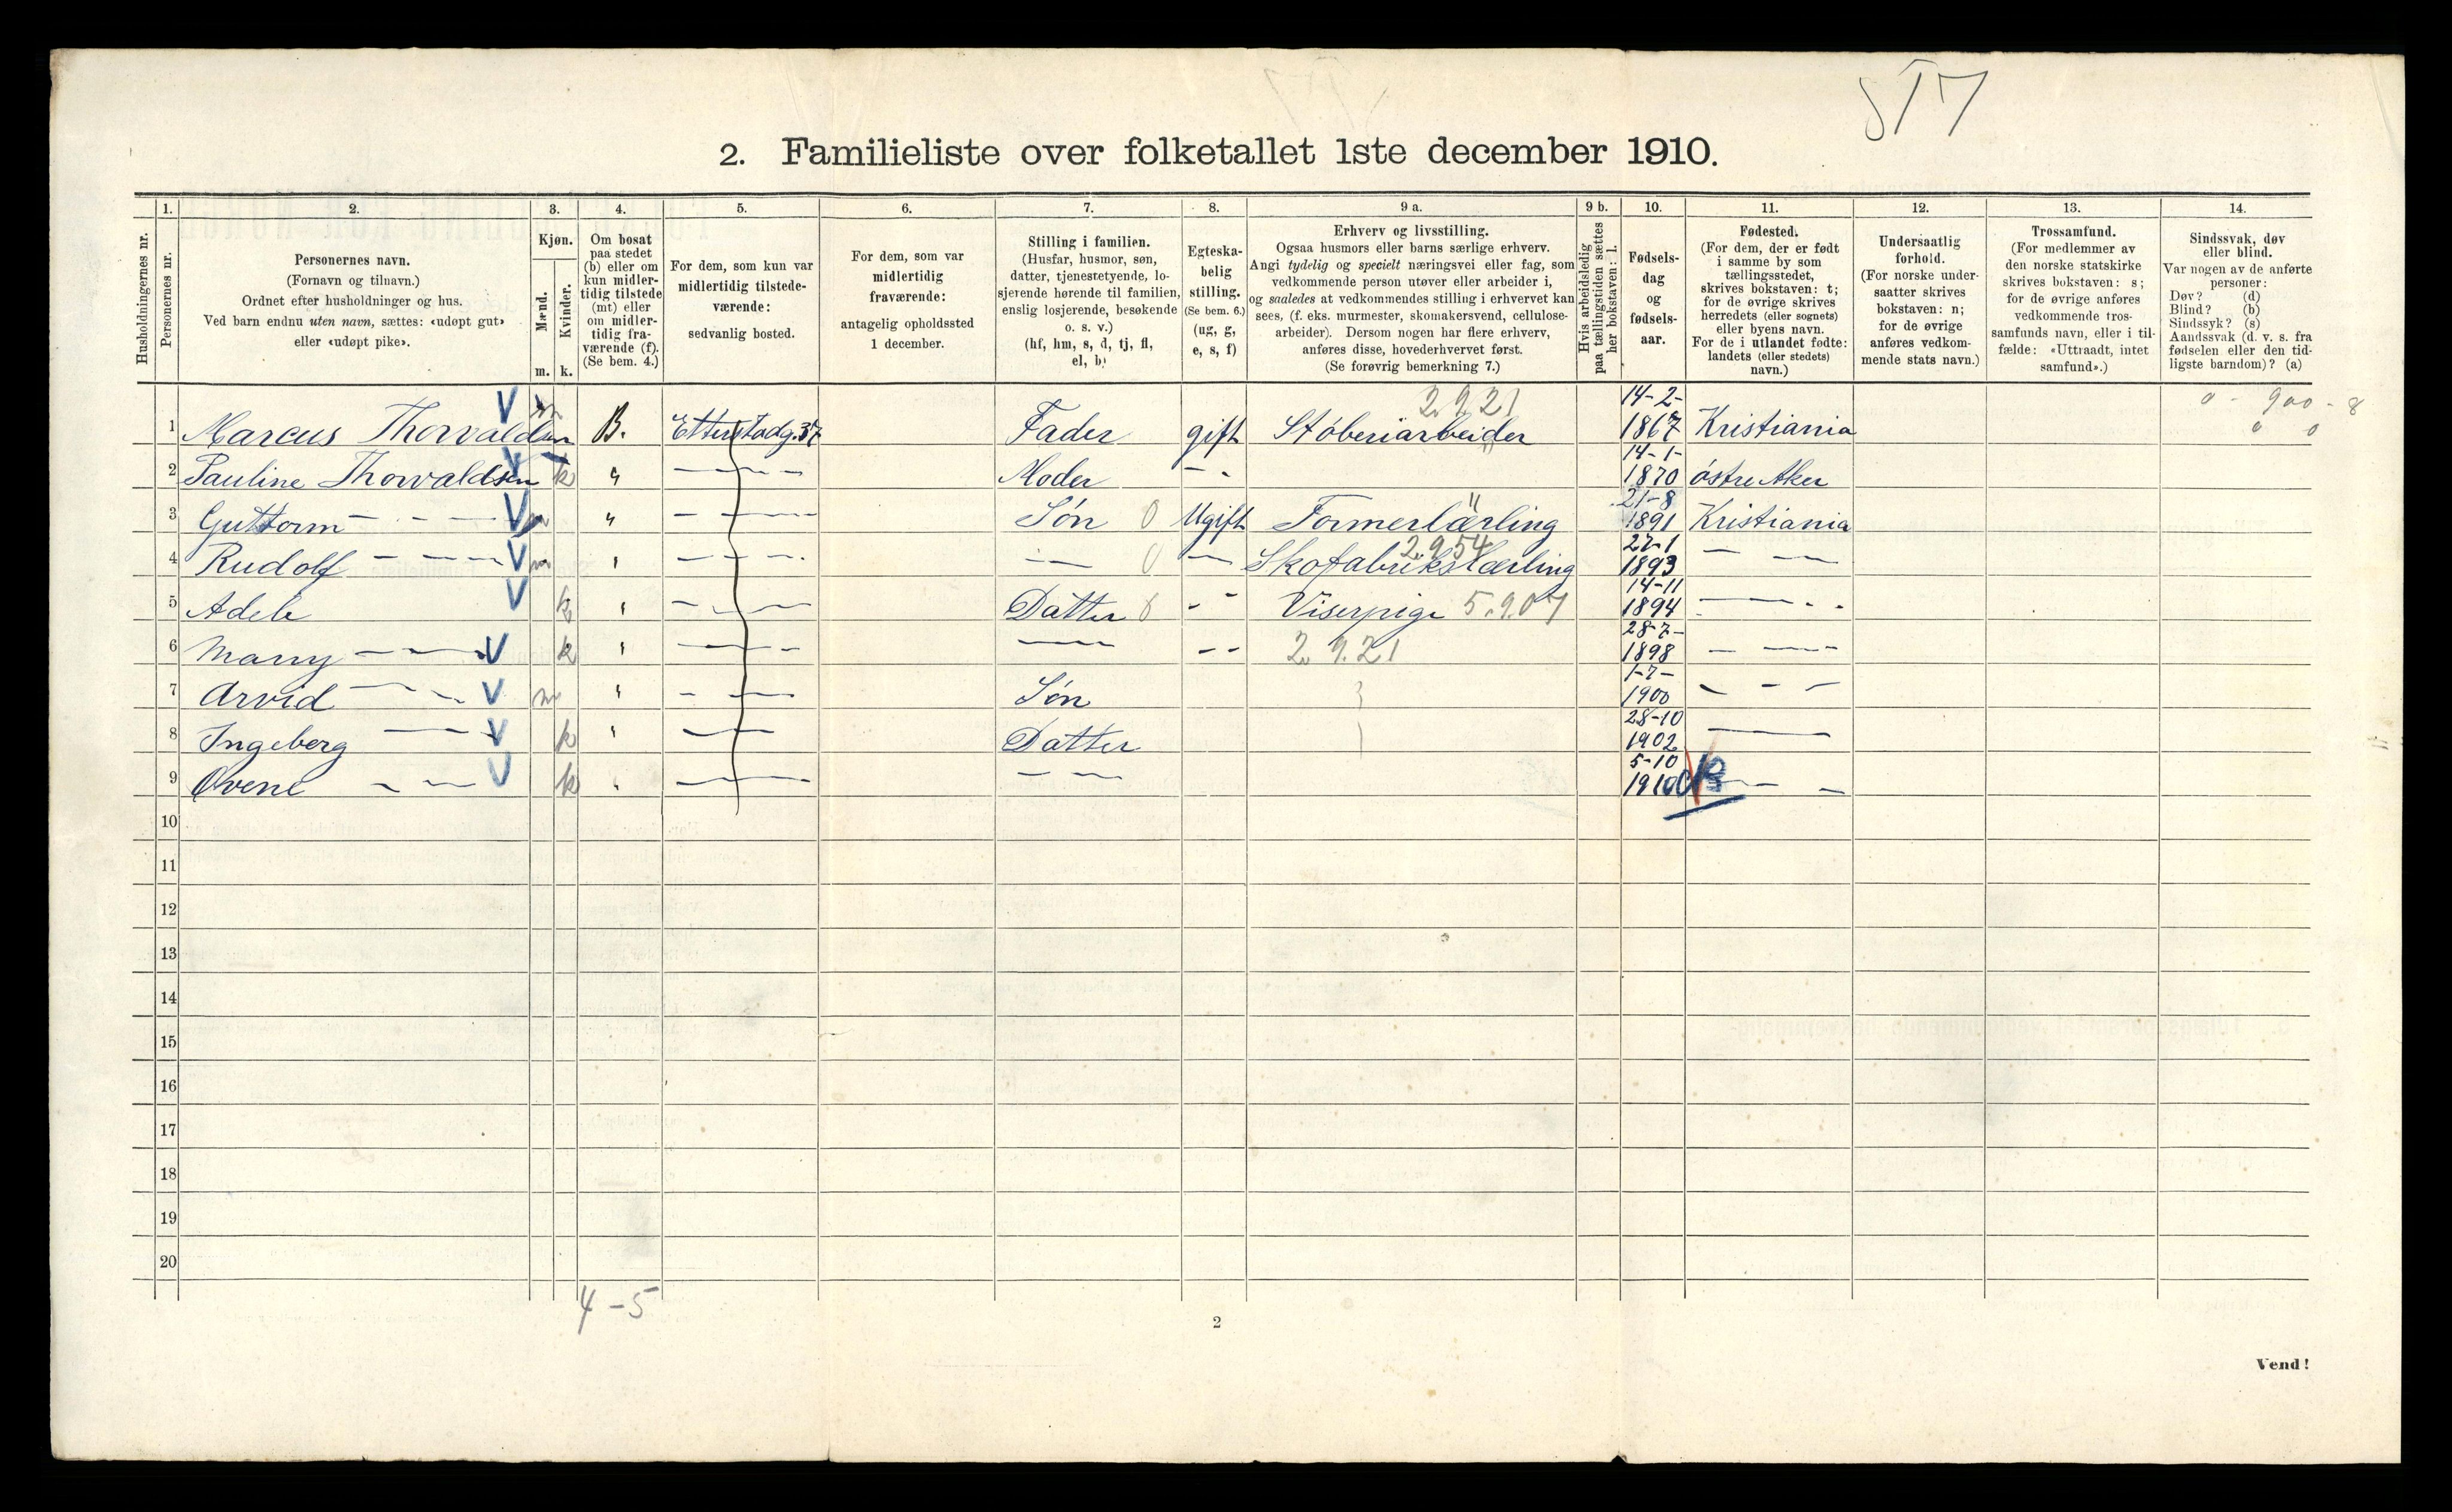 2. Familieliste over folketallet 1ste december 1910.
Husholdningernes nr.
1.
Personernes nr.
2.
Personernes navn.
(Fornavn og tilnavn.)
Ordnet efter husholdninger og hus.
Ved barn endnu uten navn, sættes: «udøpt gut»
eller «udøpt pike».
3.
Kjøn.
Mænd.
Kvinder.
m. k.
4.
Om bosat
paa stedet
(b) eller om
kun midler-
tidig tilstede
(mt) eller
om midler-
tidig fra-
værende (f).
(Se bem. 4.)
5.
For dem, som kun var
midlertidig tilstede-
værende:
sedvanlig bosted.
6.
For dem, som var
midlertidig
fraværende:
antagelig opholdssted
1 december.
7.
Stilling i familien.
(Husfar, husmor, søn,
datter, tjenestetyende, lo-
sjerende hørende til familien,
enslig losjerende, besøkende
o. s. v.)
(hf, hm, s, d, tj, fl,
el, b)
8.
Egteska-
belig
stilling.
(Se bem. 6.)
(ug, g,
e, s, f)
9 a.
Erhverv og livsstilling.
Ogsaa husmors eller barns særlige erhverv.
Angi tydelig og specielt næringsvei eller fag, som
vedkommende person utøver eller arbeider i,
og saaledes at vedkommendes stilling i erhvervet kan
sees, (f. eks. murmester, skomakersvend, cellulose-
arbeider). Dersom nogen har flere erhverv,
anføres disse, hovederhvervet først.
(Se forøvrig bemerkning 7.)
9 b.
Hvis arbeidsledig
paa tællingstiden sættes
her bokstaven: l.
10.
Fødsels-
dag
og
fødsels-
aar.
11.
Fødested.
(For dem, der er født
i samme by som
tællingsstedet,
skrives bokstaven: t;
for de øvrige skrives
herredets (eller sognets)
eller byens navn.
For de i utlandet fødte:
landets (eller stedets)
navn.)
12.
Undersaatlig
forhold.
(For norske under-
saatter skrives
bokstaven: n;
for de øvrige
anføres vedkom-
mende stats navn.)
13.
Trossamfund.
(For medlemmer av
den norske statskirke
skrives bokstaven: s;
for de øvrige anføres
vedkommende tros-
samfunds navn, eller i til-
fælde: «Uttraadt, intet
samfund».)
14.
Sindssvak, døv
eller blind.
Var nogen av de anførte
personer:
Døv? (d)
Blind? (b)
Sindssyk? (s)
Aandssvak (d. v. s. fra
fødselen eller den tid-
ligste barndom)? (a)
2.9.21 14-2- 0 - 900 - 8
1 Marcus Thorvaldsen m B. Etterstadg. 37 Fader gift Stöberiarbeider 1867 Kristiania 0 0
14-1-
2 Pauline Thorvaldsen k " — — Moder — - 1870 östre Aker
21-8
3 Guttorm — - — m " — — Søn 0 Ugift Formerlærling 1891 Kristiania
2.9.54 27-1
4 Rudolf — — — m " — — — 0 — Skofabrikslærling 1893 — —
14-11
5 Adele k " — — Datter 0 - - Viserpige 5.9.07 1894 — - -
28-7-
6 Marry — — k " — — — - - 2.9.21 1898 — —
1-7-
7 Arvid — - m " — — Søn 1900 — - —
28-10
8 Ingeberg — k " — — Datter 1902 —
5-10
9 Ovene — — k " — — — 1910 — —
10
11
12
13
14
15
16
17
18
19
20
4 - 5
2
Vend!